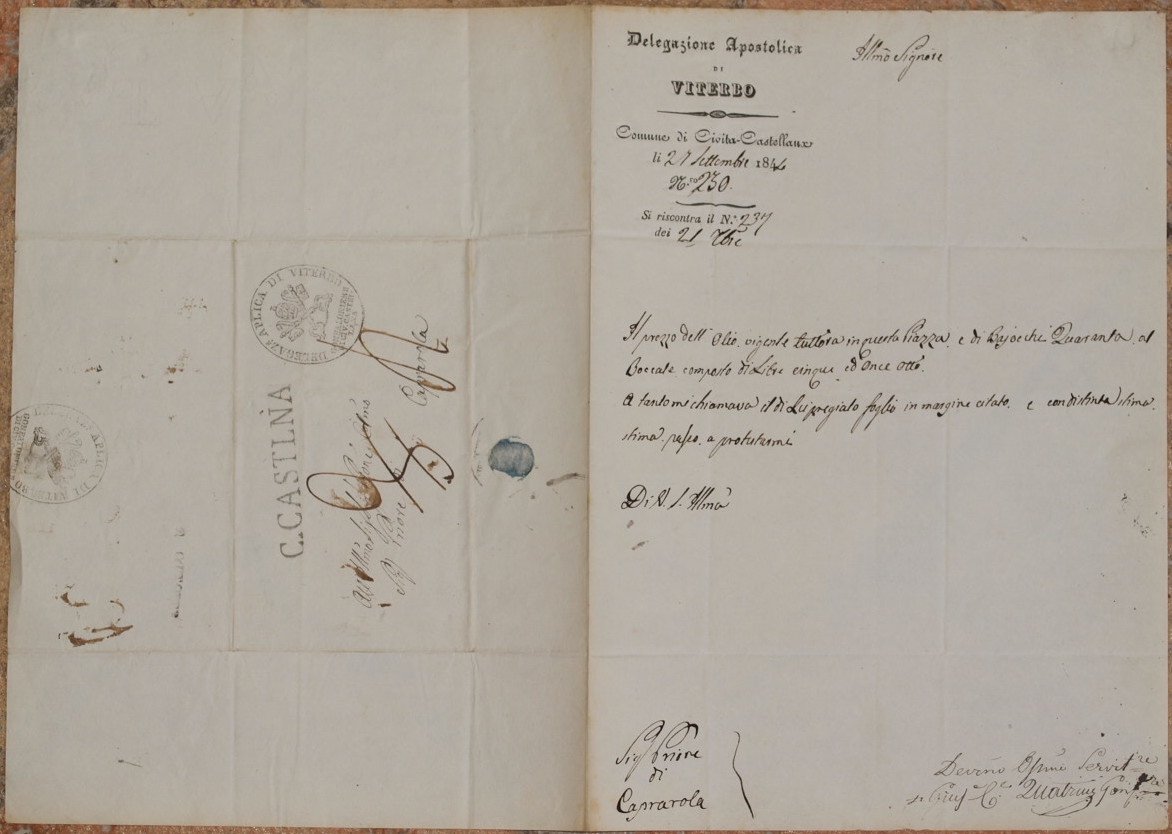 DELEGAZ. APLICA DI VITERBO
C. CASTLNA
All' Illmo Sig.
Sig. Priore
Caprarola
Delegazione Apostolica
DI
VITERBO
Comune di Civita-Castellana
li 27 Settembre 1844
N.ro 230.
Si riscontra il N.° 237
dei 21 7bre
Illmo Signore
Il prezzo dell' Olio vigente tuttora in questa Piazza, e di Bajocchi Quaranta al
Boccale composto di Libre cinque ed Once Otto.
A tanto mi chiamava il di Lei pregiato foglio in margine citato, e con distinta stima
stima passo a protestarmi
Di V. S. Illma
Sig. Priore
di
Caprarola
Devmo Servitre